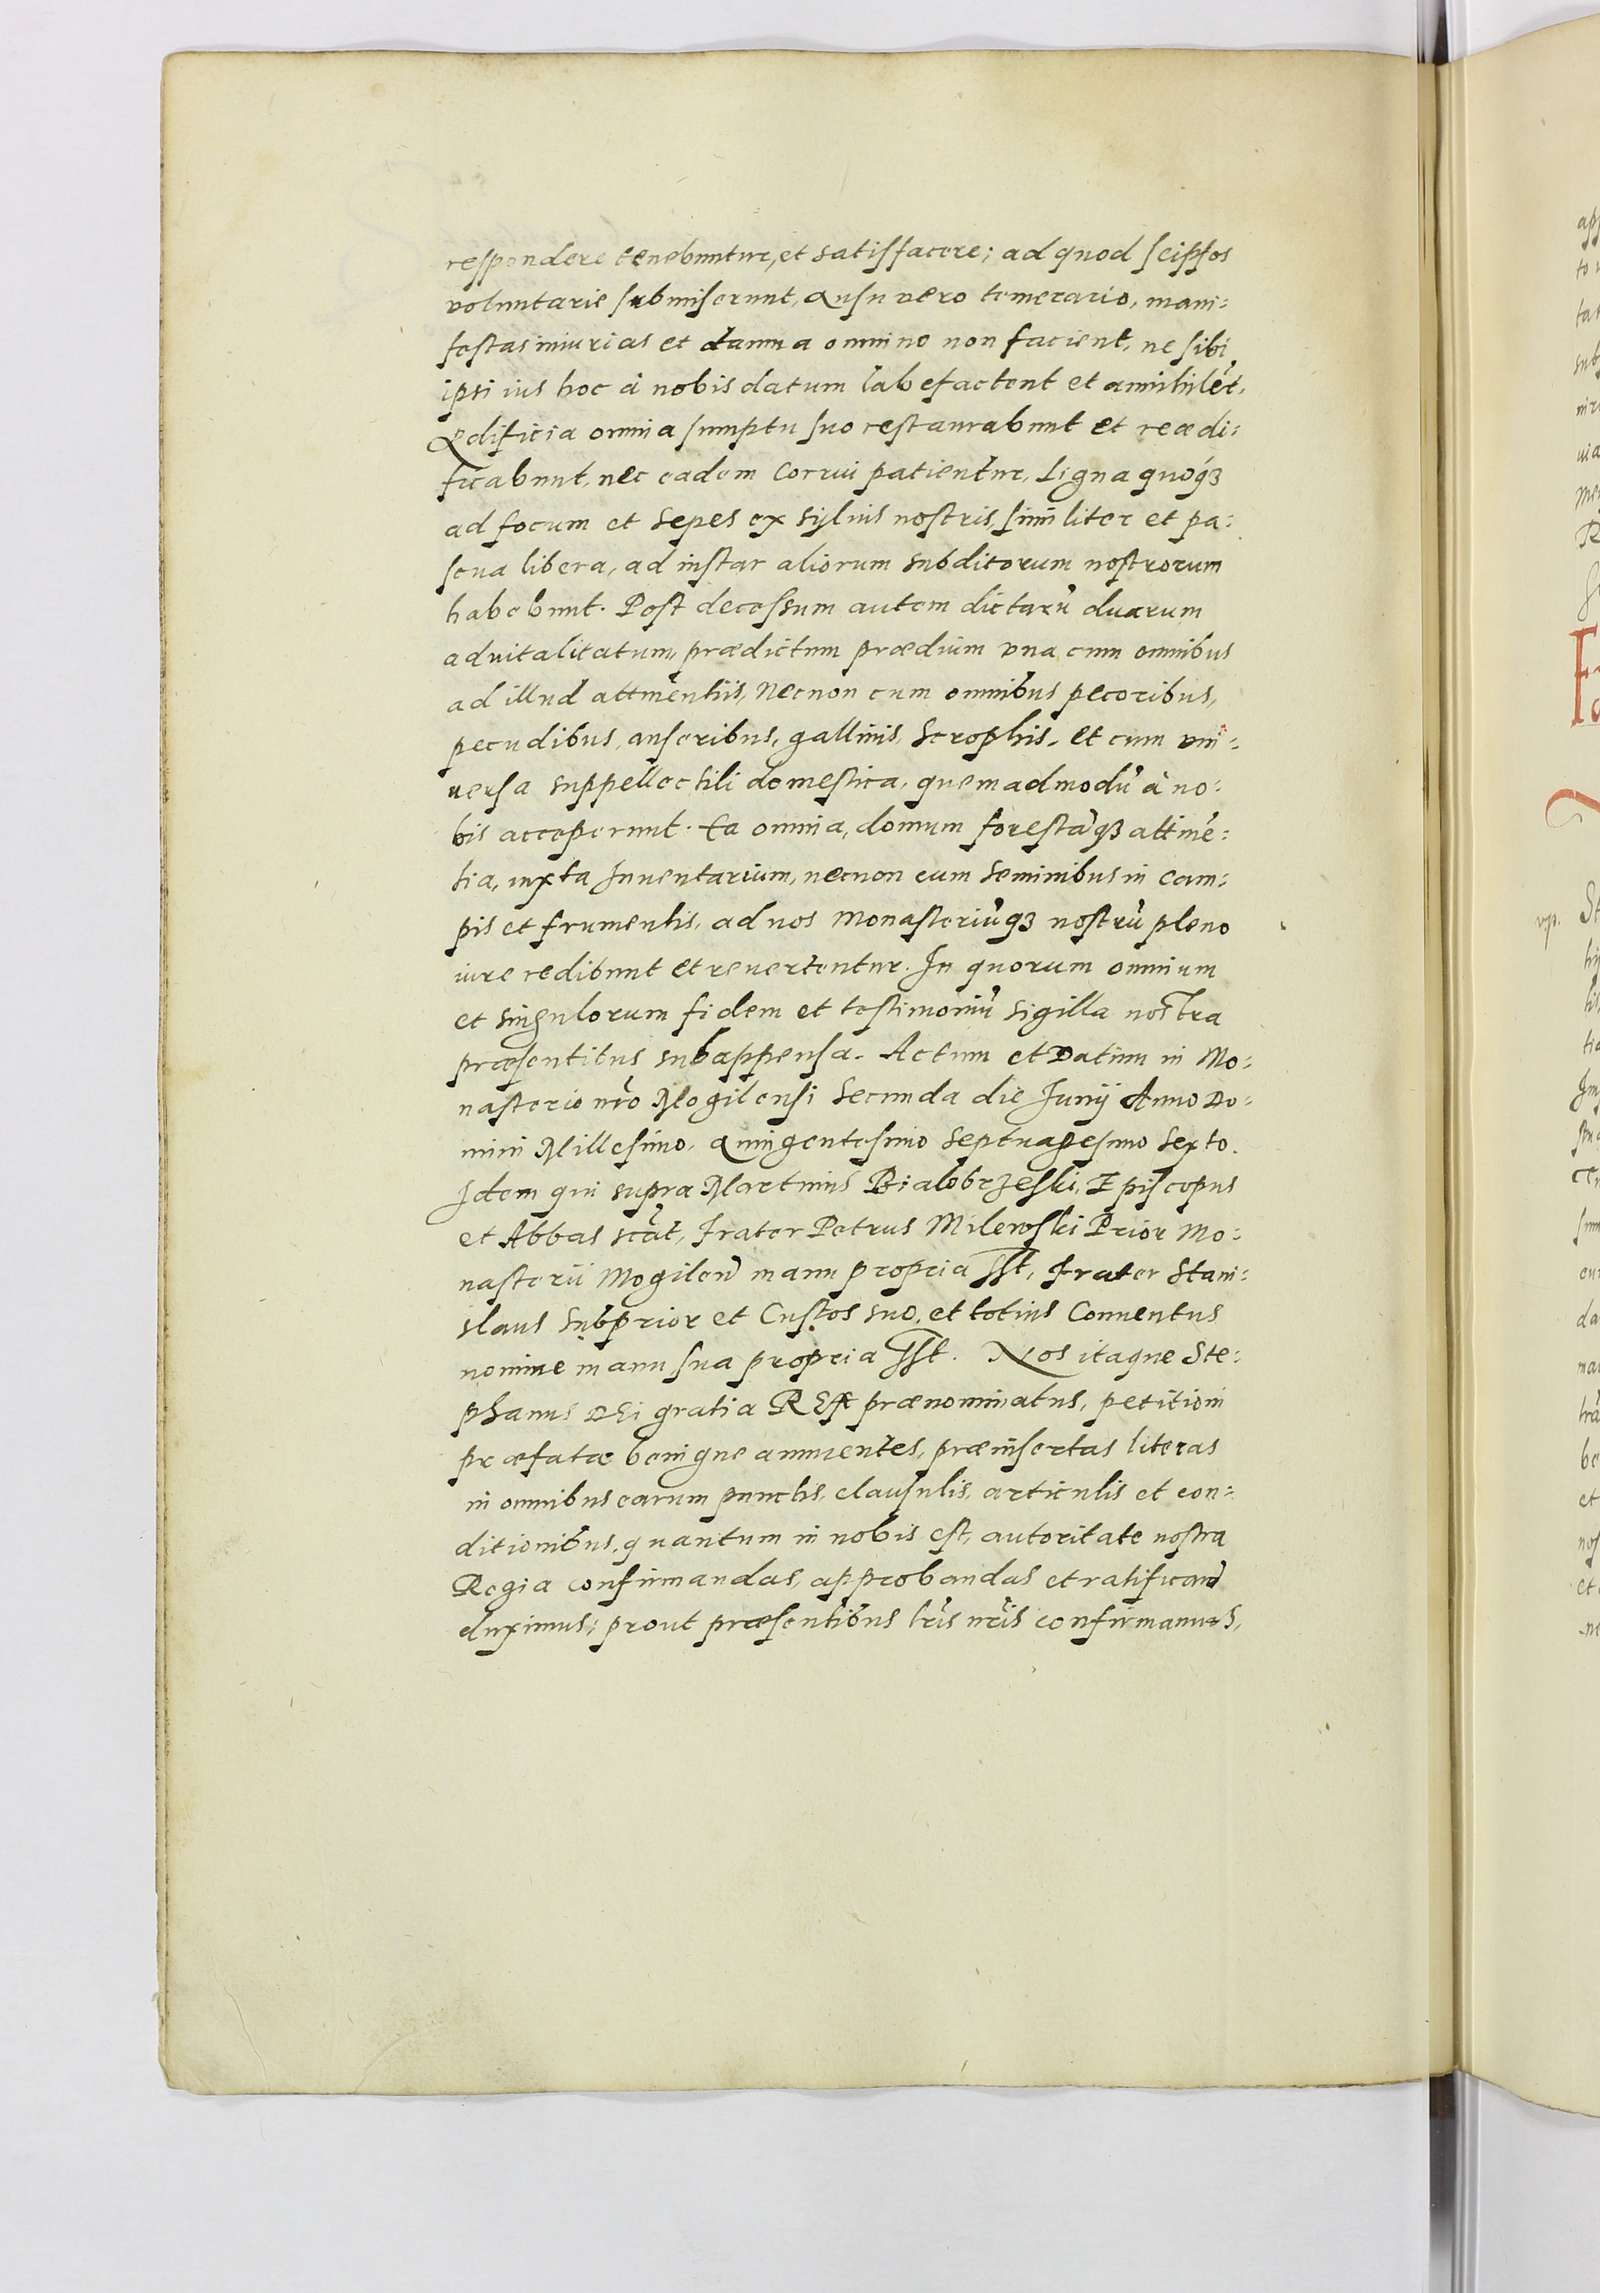 respondere tenebuntur, et satisfacere; ad quod seipsos
voluntarie submiserunt, Ausu vero temerario, mani:
festas iniurias et damna omnino non facient, ne sibi
ipsi ius hoc à nobis datum labefactent et annihilēt.
Ædificia omnia sumptu suo restaurabunt et reædi:
ficabunt, nec eadem corrui patientur, Ligna quoqꝫ
ad focum et sepes ex sylvis nostris, similiter et pa:
scua libera, ad instar aliorum subditorum nostrorum
habebunt. Post decessum autem dictarū duarum
advitalitatum, prædictum prædium vna cum omnibus
ad illud attinentiis, Necnon cum omnibus pecoribus,
pecudibus, anseribus, gallinis, scrophis, et cum vni:
uersa suppellectili domestica, quemadmodū à no:
bis acceperunt. Ea omnia, domum forestāqꝫ attinē:
tia, iuxta Inuentarium, necnon cum seminibus in cam:
pis et frumentis, ad nos Monasteriūqꝫ nostrū pleno
iure redibunt et reuertentur. In quorum omnium
et singulorum fidem et testimoniū sigilla nostra
præsentibus subappensa. Actum et Datum in Mo:
nasterio nr̄o Mogilensi Secunda die Junij Anno Do:
mini Millesimo, Quingentesimo Septuagesimo Sexto.
Idem qui supra Martinus Bialobrzeski, Episcopus
et Abbas scāt, Frater Petrus Milewski Prior Mo:
nasterii Mogilen̄ manu propria sst, Frater Stani:
slaus Subprior et Custos suo, et totius Conuentus
nomine manu sua propria sst. Nos itaque Ste:
phanus DEi gratia REX prænominatus, petitioni
præfatæ benigne annuentes, præinsertas literas
in omnibus earum punctis, clausulis, articulis et con:
ditionibus, quantum in nobis est, autoritate nostra
Regia confirmandas, approbandas et ratificand̄
duximus; prout præsentibus lr̄is nr̄is confirmamus,